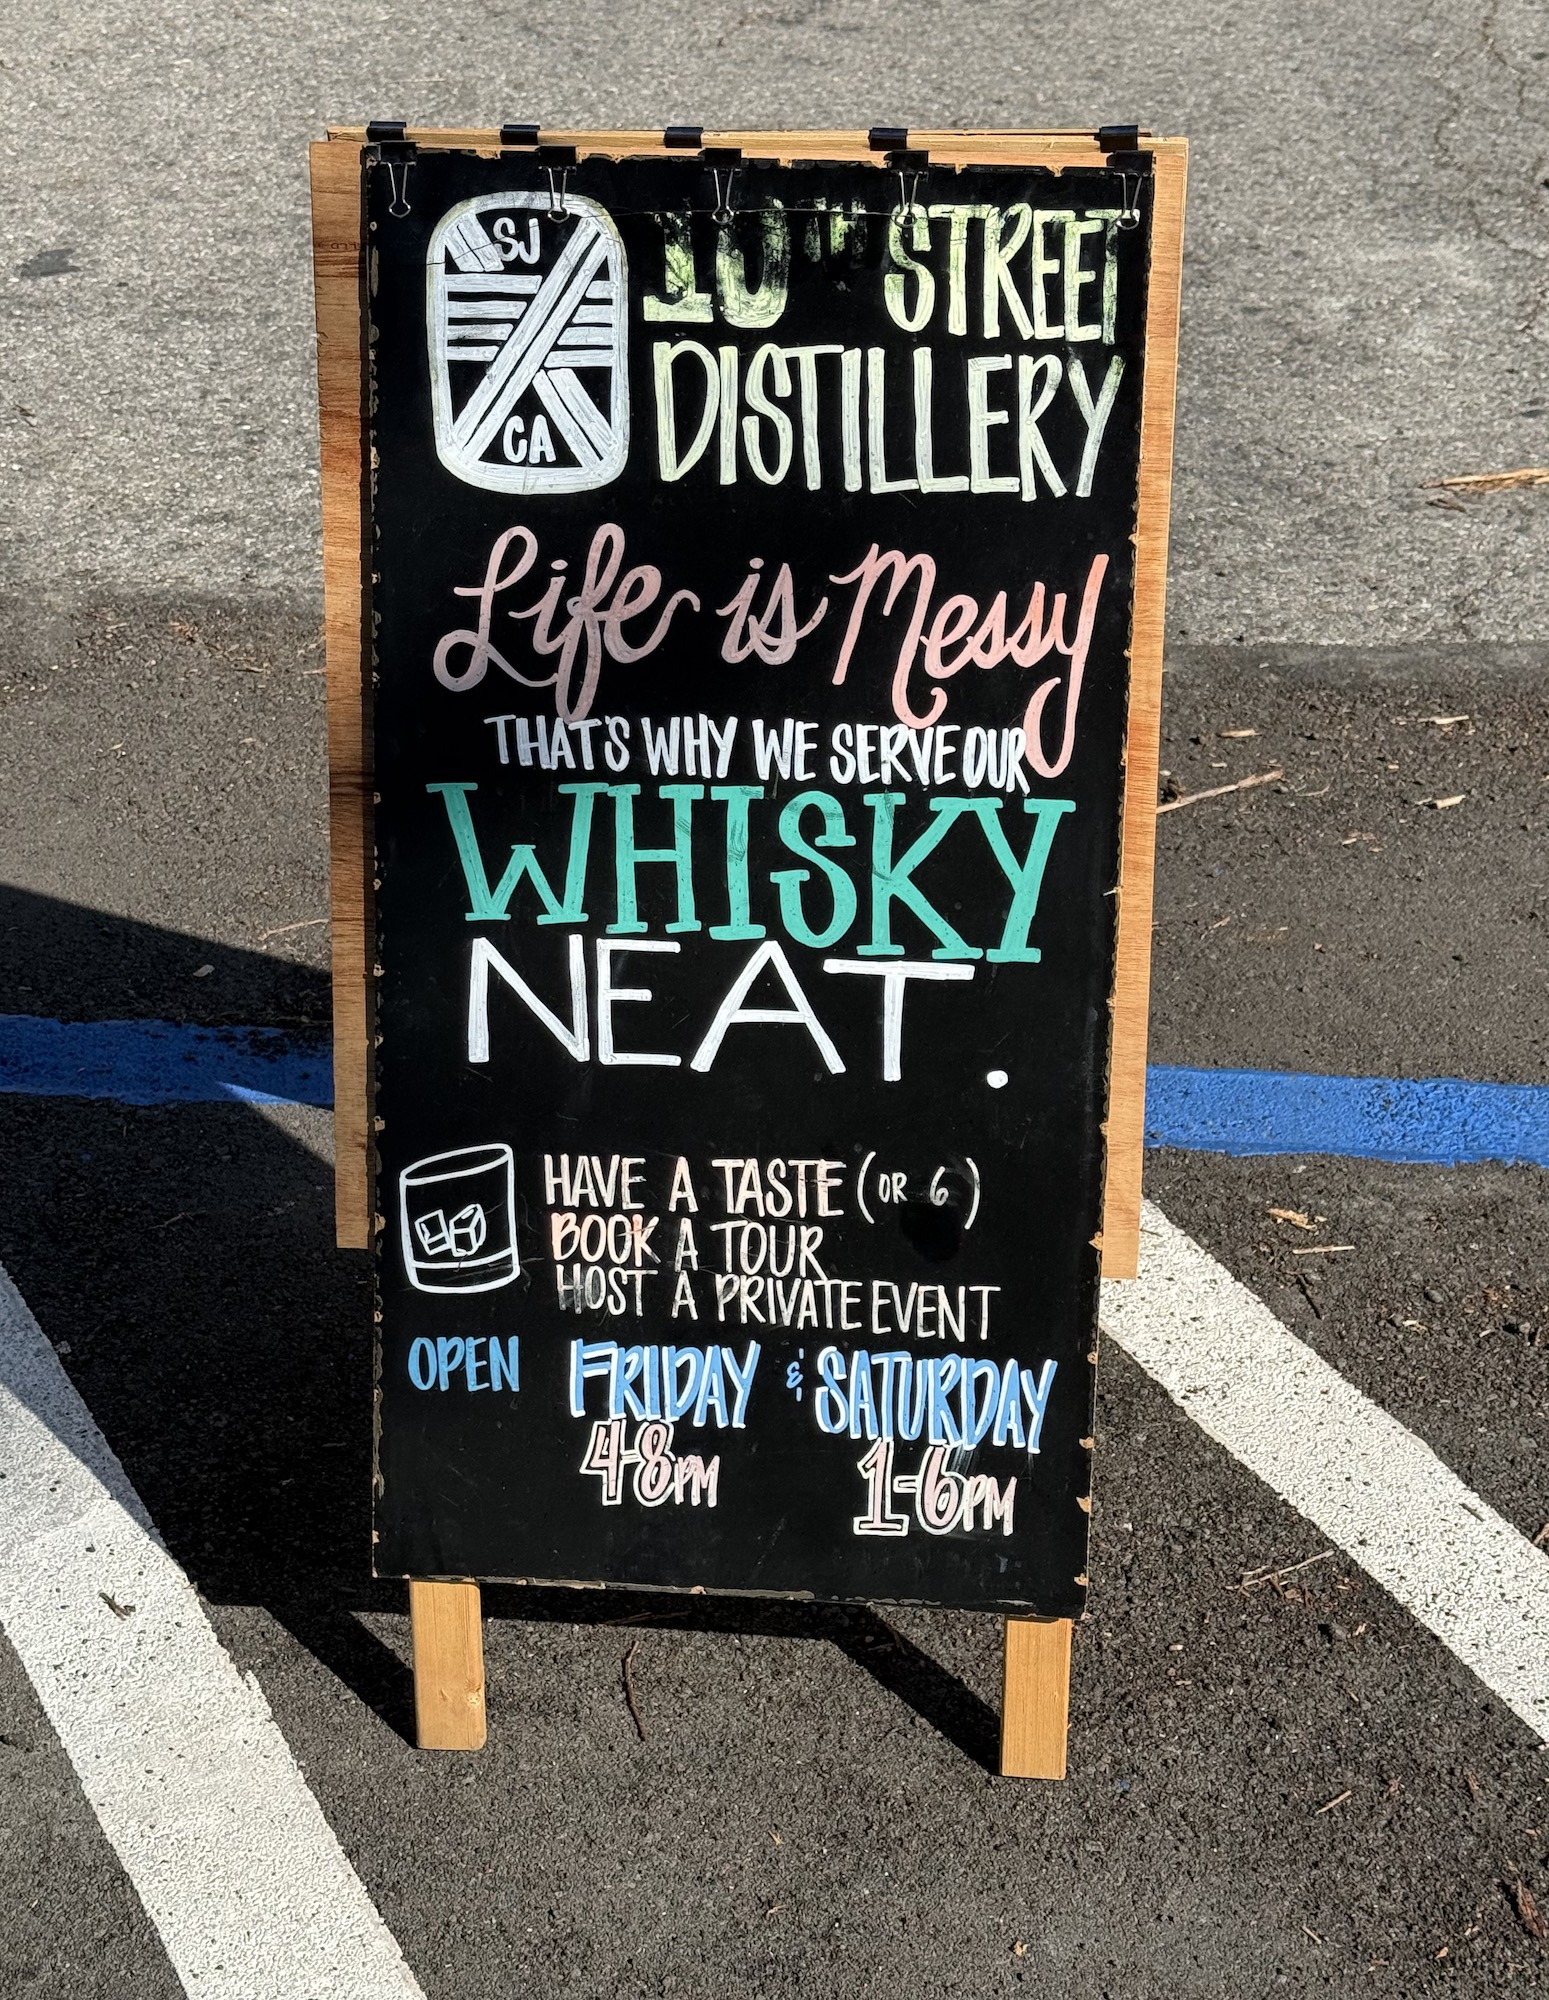 SJ
CA
10TH STREET
DISTILLERY
Life is Messy
THAT'S WHY WE SERVE OUR
WHISKY
NEAT.
HAVE A TASTE (OR 6)
BOOK A TOUR
HOST A PRIVATE EVENT
OPEN FRIDAY & SATURDAY
4-8PM 1-6PM